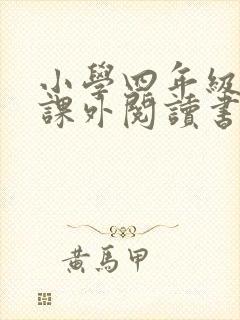 小學四年級
課外閱讀書
黃馬甲